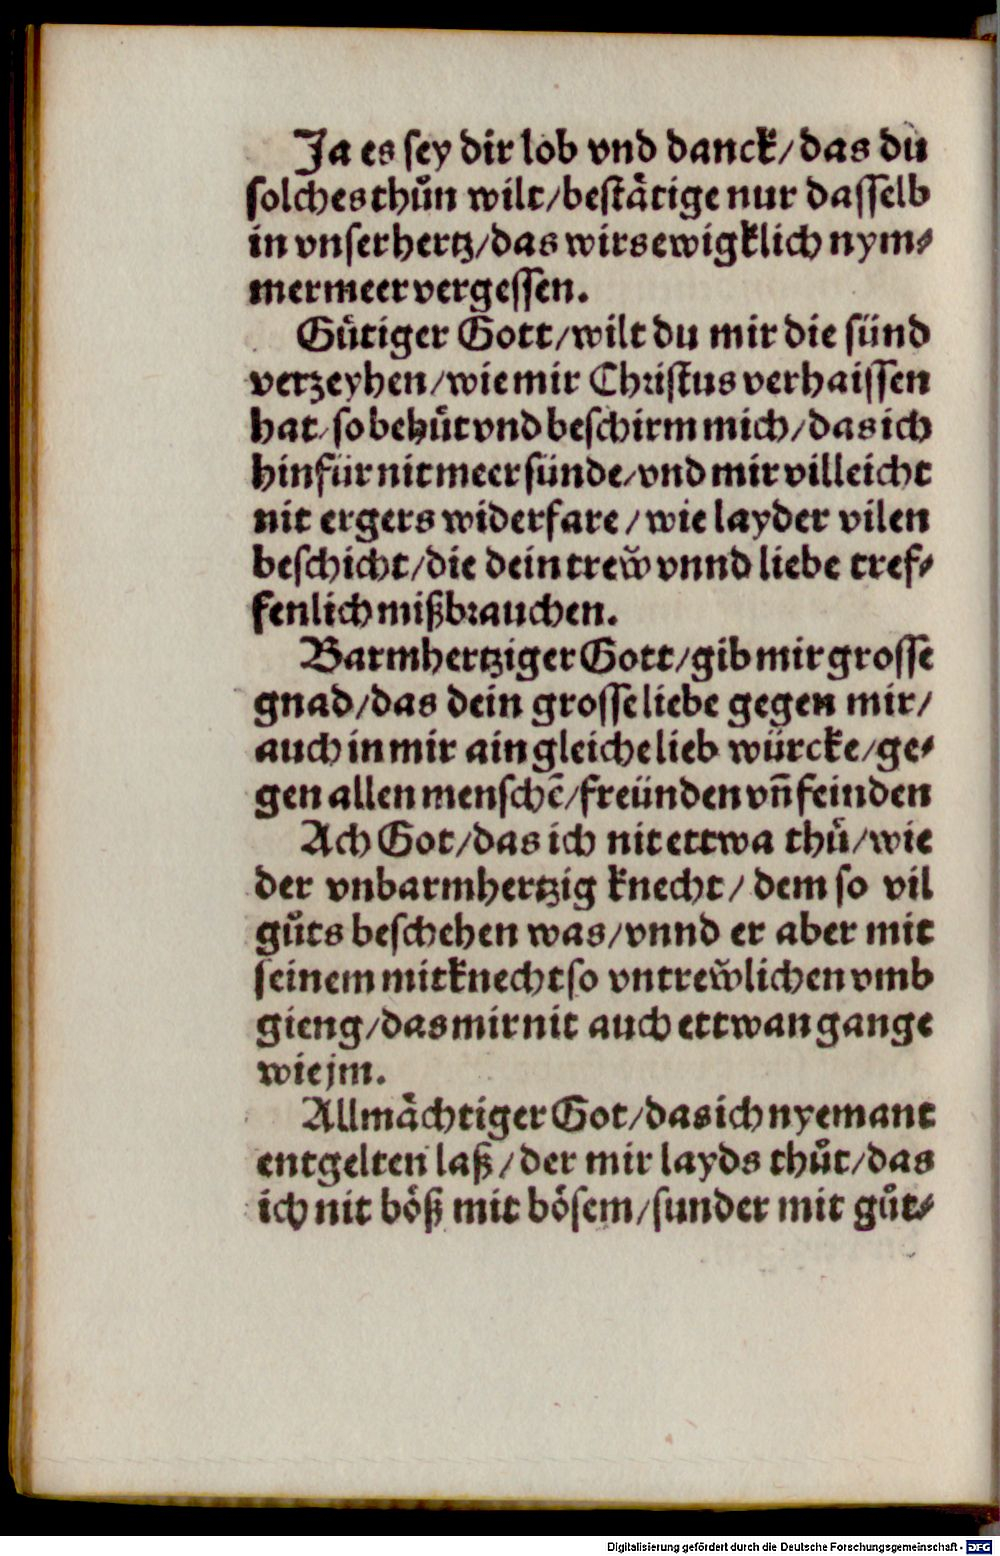 Ja es sey dir lob vnd danck/das du
solches thůn wilt/bestätige nur dasselb
in vnser hertz/das wirs ewigklich nym⸗
mer meer vergessen.
Gütiger Gott/wilt du mir die sünd
verzeyhen/wie mir Christus verhaissen
hat/so behüt vnd beschirm mich/das ich
hinfür nit meer sünde/vnd mir villeicht
nit ergers widerfare/wie layder vilen
beschicht/die dein trew̃ vnnd liebe tref⸗
fenlich mißbrauchen.
Barmhertziger Gott/gib mir grosse
gnad/das dein grosse liebe gegen mir/
auch in mir ain gleiche lieb würcke/ge⸗
gen allen menschē/freünden vñ feinden
Ach Got/das ich nit ettwa thů/wie
der vnbarmhertzig knecht/dem so vil
gůts beschehen was/vnnd er aber mit
seinem mitknecht so vntrew̃lichen vmb
gieng/das mir nit auch ettwan gange
wie jm.
Allmächtiger Got/das ich nyemant
entgelten laß/der mir layds thůt/das
ich nit böß mit bösem/sunder mit gůt⸗
Digitalisierung gefördert durch die Deutsche Forschungsgemeinschaft - DFG